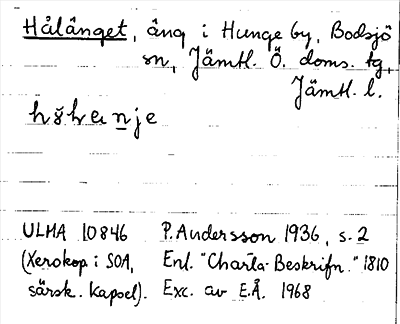 Hålänget, äng i Hunge by, Bodsjö
sn, Jämtl. Ö. doms. tg,
Jämtl. l.
ULMA 10846 P. Andersson 1936, s. 2
(Xerokop i SOA, Enl. "Charta-Beskrifn." 1810
särsk. kapsel). Exc. av E.Å. 1968